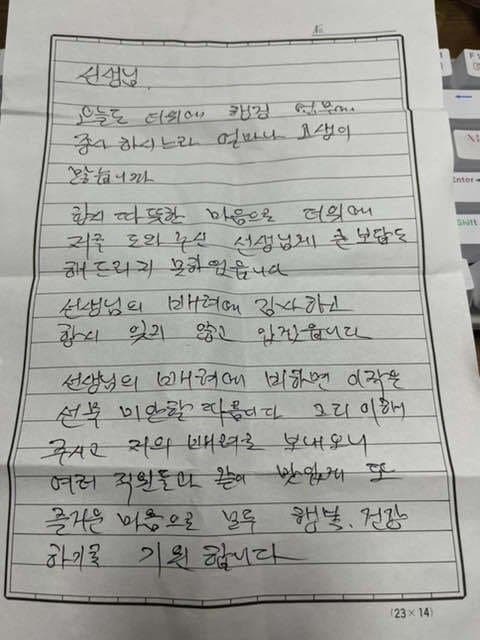 No
선생님.
오늘도 더위에 행정 업무에
종사 하시느라 얼마나 고생이
많습니까
항시 따뜻한 마음으로 더위에
저를 도와 주신 선생님께 큰 보답도
해 드리지 못하였읍니다
선생님의 배려에 감사하고
항시 잊지 않고 있겠읍니다
선생님의 배려에 비하면 이작은
선물 미안할 따름이다 그리 이해
주시고 저의 배려로 보내오니
여러 직원들과 같이 맛있게 또
즐거운 마음으로 모두 행복, 건강
하기를 기원 합니다
(23×14)
Enter
Shift